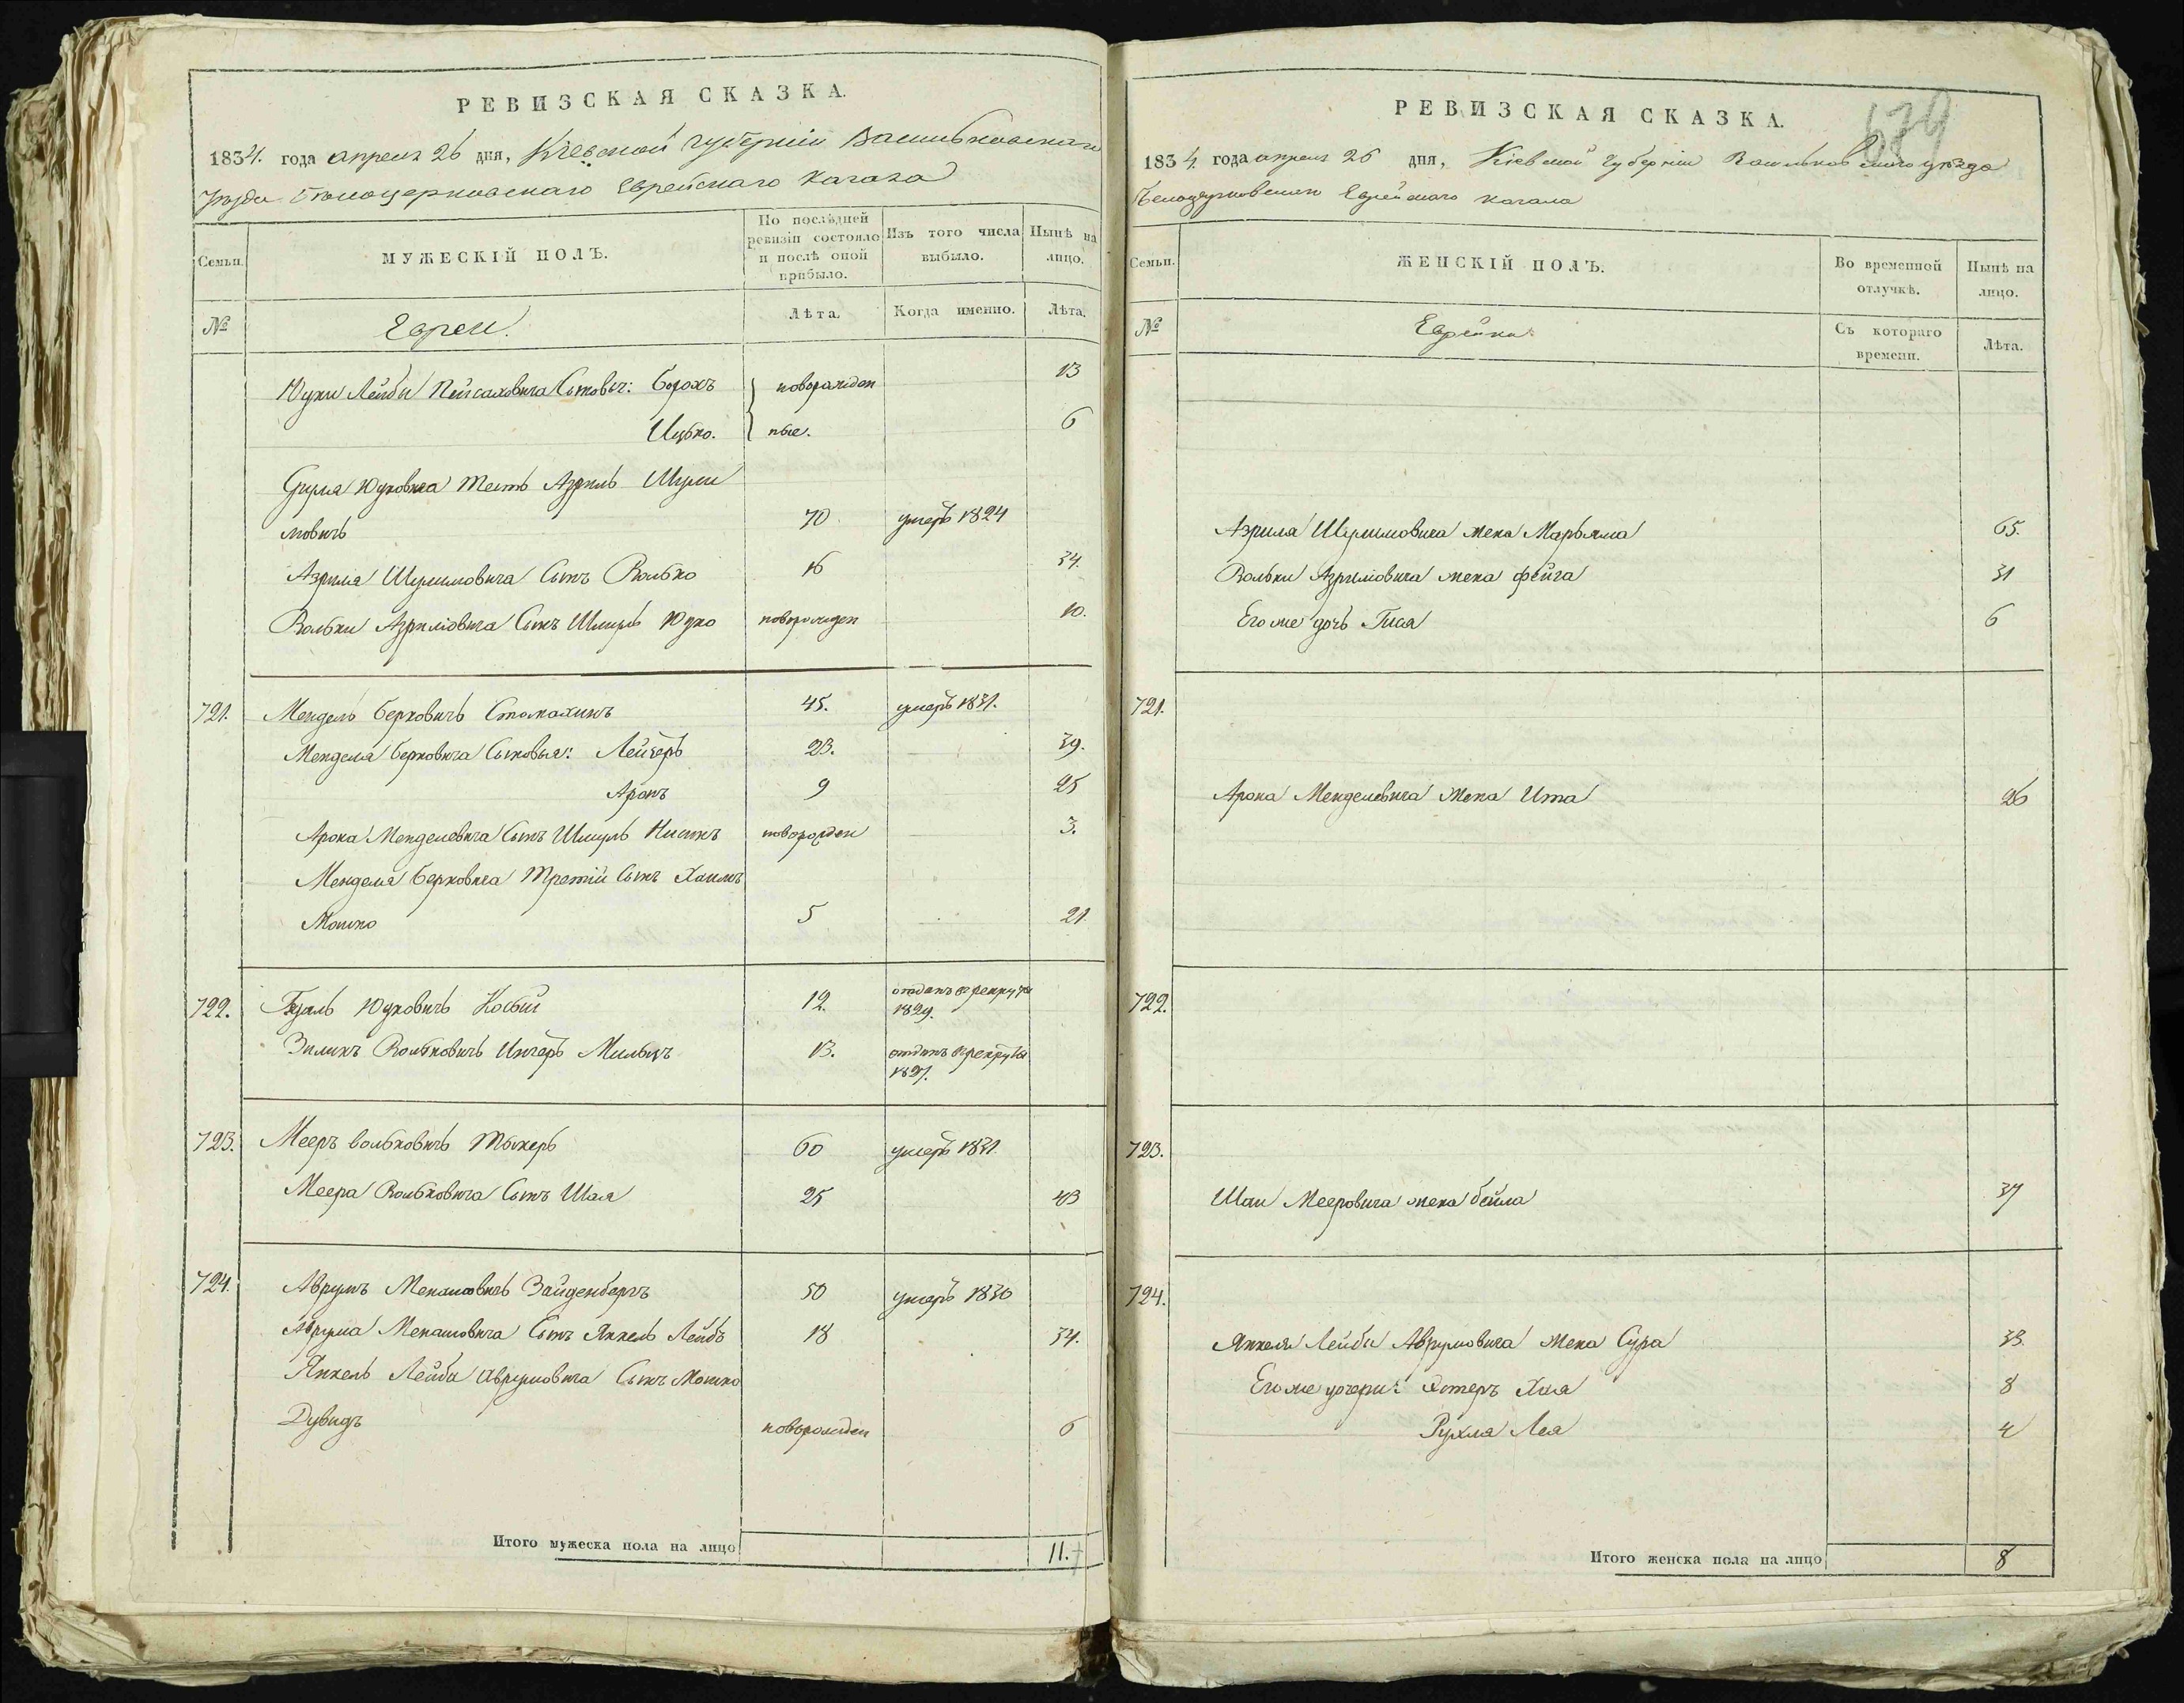 РЕВИЗСКАЯ СКАЗКА.
1834. года апреля 26 дня, Кіевской губерніи Васильковскаго
Уезда Белоцерковскаго Еврейскаго Кагала
Семьи.
МУЖЕСКІЙ ПОЛЪ.
По послѣдней ревизіи состояло и послѣ оной прибыло.
Изъ того числа выбыло.
Нынѣ на лицо.
№
Евреи.
Лѣта.
Когда именно.
Лѣта.
Юдки Лейбы Пейсаховича Сыновья: Борохъ новорожден 13
Ицько. ные. 6
Сруля Юдковича тесть Азриль Шули
мовичъ 70 умеръ 1824
Азриля Шулимовича Сынъ Волько 16 34.
Вольки Азриліовича Сынъ Шмуль Юдко новорожден 10.
721. Мендель Берковичъ Стомахинъ 45. умеръ 1831.
Менделя Берковича Сыновья: Лейзеръ 23. 39.
Аронъ 9 25
Арона Менделевича Сынъ Шмуль Нисинъ новорожден 3.
Менделя Берковича третій Сынъ Хаимъ
Мошко 5 21
722. Юдковичъ Косый 12. отданъ в рекруты
1829.
Зиликъ Вольковичъ Мильнъ 13. отданъ в рекруты
1827.
723. Мееръ Вольковичъ Токеръ 60 умеръ 1831.
Меера Вольковича Сынъ Шая 25 43
724. Аврумъ Менашовичъ Зайденбергъ 50 умеръ 1830
Аврума Менашовича Сынъ Янкель Лейбъ 18 34.
Янкель Лейбы Аврумовича Сынъ Мошко
Дувидъ новорожден 6
Итого мужеска пола на лицо 11.
РЕВИЗСКАЯ СКАЗКА.
639
1834. года апреля 26 дня, Кіевской губерніи Васильковскаго уезда
Белоцерковскаго Еврейскаго кагала
Семьи.
ЖЕНСКІЙ ПОЛЪ.
Во временной отлучкѣ.
Нынѣ на лицо.
№
Еврейки.
Съ котораго времени.
Лѣта.
Азриля Шулимовича жена Марьяма 65.
Вольки Азриліовича жена Фейга 31
Его же дочь Гися 6
721.
Арона Менделевича жена Ита 26
722.
723.
Шаи Мееровича жена Бейла 37
724.
Янкеля Лейбы Аврумовича жена Сура 33.
Его же дочери: Эстеръ Хая 8
Рухля Лея 4
Итого женска пола на лицо 8